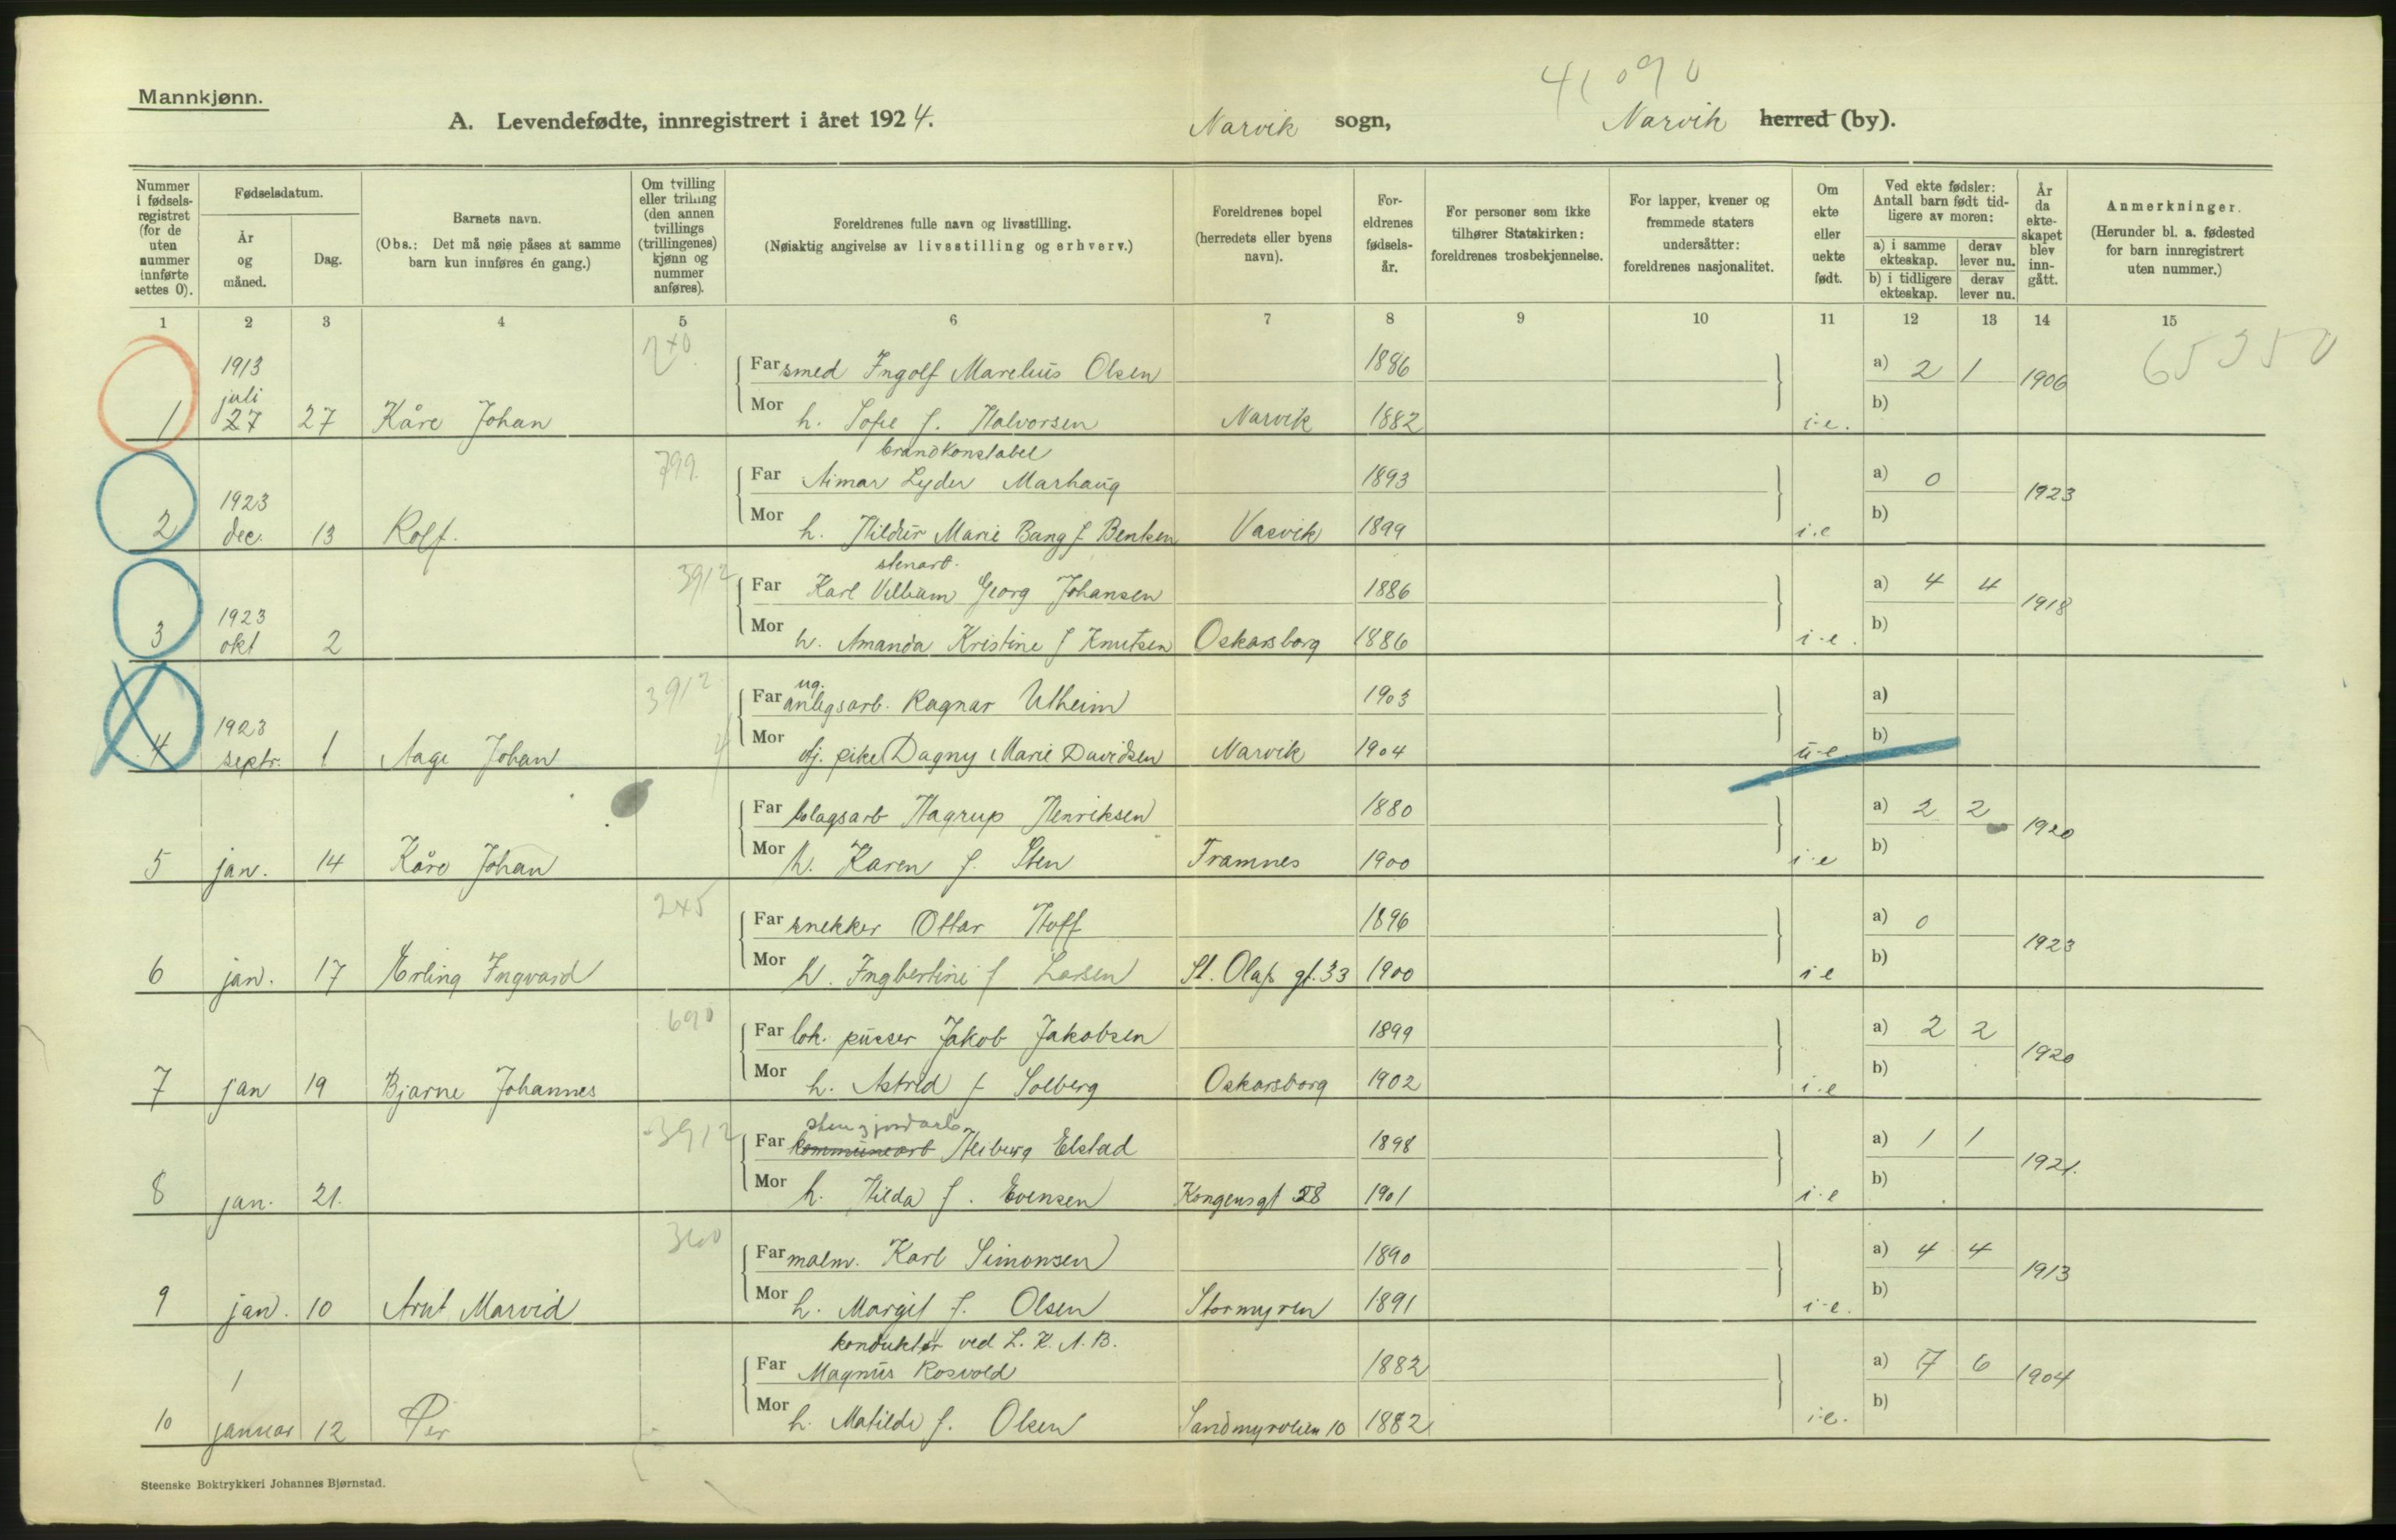 41090
Mannkjønn.
A. Levendefødte, innregistrert i året 1924. Narvik sogn, Narvik herred (by).
Nummer i fødsels-registret (for de uten nummer innførte settes 0).
Fødselsdatum.
År og måned.
Dag.
Barnets navn.
(Obs.: Det må nøie påses at samme barn kun innføres én gang.)
Om tvilling eller trilling (den annen tvillings (trillingenes) kjønn og nummer anføres).
Foreldrenes fulle navn og livsstilling.
(Nøiaktig angivelse av livsstilling og erhverv.)
Foreldrenes bopel (herredets eller byens navn).
For-eldrenes fødsels-år.
For personer som ikke tilhører Statskirken: foreldrenes trosbekjennelse.
For lapper, kvener og fremmede staters undersåtter: foreldrenes nasjonalitet.
Om ekte eller uekte født.
Ved ekte fødsler: Antall barn født tid-ligere av moren:
a) i samme ekteskap.
derav lever nu.
b) i tidligere ekteskap.
derav lever nu.
År da ekte-skapet blev inn-gått.
Anmerkninger.
(Herunder bl. a. fødested for barn innregistrert uten nummer.)
1 2 3 4 5 6 7 8 9 10 11 12 13 14 15
1913 Far smed Ingolf Marelius Olsen 1886 a) 2 1 1906 65350
juli
1 27 27 Kåre Johan Mor h. Sofie f. Halvorsen Narvik 1882 i.e. b)
brandkonstabel
799. Far Aimar Lyder Marhaug 1893 a) 0 1923
1923
2 dec. 13 Rolf. Mor h. Hildur Marie Bang f Bentsen Vasvik 1899 i.e b)
stenarb.
3912 Far Karl Villiam Georg Johansen 1886 a) 4 4 1918
1923
3 okt 2 Mor h. Amanda Kristine f Knutsen Oskarsborg 1886 i.e. b)
ug.
3912 Far anlegsarb. Ragnar Utheim 1903 a)
1923
4 septr. 1 Aage Johan Mor ug. pike Dagny Marie Davidsen Narvik 1904 u-e b)
Far bolagsarb Hagrup Henriksen 1880 a) 2 2 1920
5 jan. 14 Kåre Johan Mor h. Karen f. Sten Framnes 1900 i.e b)
245 Far snekker Ottar Hoff 1896 a) 0 1923
6 jan. 17 Erling Ingvard Mor h. Ingbertine f Larsen St. Olafs gt. 33 1900 i e b)
690 Far lok. pusser Jakob Jakobsen 1899 a) 2 2 1920
7 jan 19 Bjarne Johannes Mor h. Astrid f Solberg Oskarsborg 1902 i.e b)
sten j jordarb
3912 Far kommunearb Heiberg Elstad 1898 a) 1 1 1921.
8 jan. 21. Mor h. Hilda f. Evensen Kongensgt 28 1901 i.e b)
360 Far malm. Karl Simonsen 1890 a) 4 4 1913
9 jan. 10 Arnt Marvid Mor h. Margit f. Olsen Stormyren 1891 i.e. b)
konduktør ved L. K. A. B.
Far Magnus Rosvold 1882 a) 7 6 1904
1
10 januar 12 Per Mor h. Matilde f. Olsen Sandmyrveien 10 1882 i.e. b)
Steenske Boktrykkeri Johannes Bjørnstad.